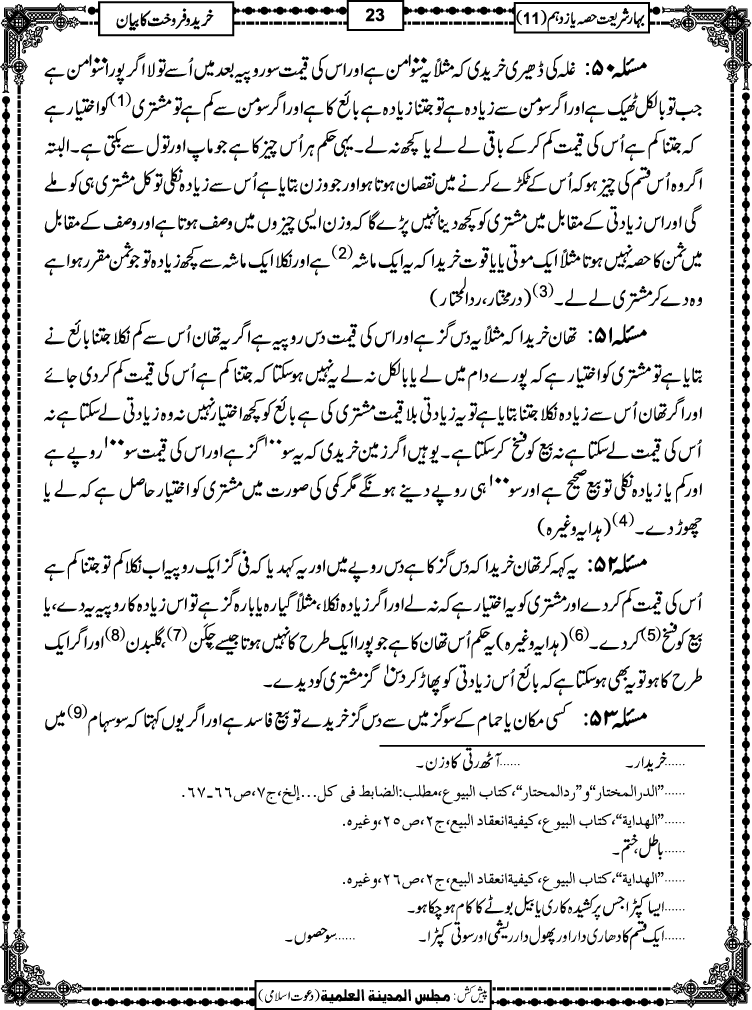 بہار شریعت حصہ یازدہم (11)
23
خرید و فروخت کا بیان
مسئلہ ۵۰: غلہ کی ڈھیری خریدی کہ مثلاً یہ سو۱۰۰ من ہے اور اس کی قیمت سو روپیہ بعد میں اُسے تولا اگر پورا سو۱۰۰ من ہے
جب تو بالکل ٹھیک ہے اور اگر سو من سے زیادہ ہے تو جتنا زیادہ ہے بائع کا ہے اور اگر سو من سے کم ہے تو مشتری (1) کو اختیار ہے
کہ جتنا کم ہے اُس کی قیمت کم کر کے باقی لے لے یا کچھ نہ لے۔ یہی حکم ہر اُس چیز کا ہے جو ماپ اور تول سے بکتی ہے۔ البتہ
اگر وہ اُس قسم کی چیز ہو کہ اُس کے ٹکڑے کرنے میں نقصان ہوتا ہو اور جو وزن بتایا ہے اُس سے زیادہ نکلی تو کل مشتری ہی کو ملے
گی اور اس زیادتی کے مقابل میں مشتری کو کچھ دینا نہیں پڑے گا کہ وزن ایسی چیزوں میں وصف ہوتا ہے اور وصف کے مقابل
میں ثمن کا حصہ نہیں ہوتا مثلاً ایک موتی یا یاقوت خریدا کہ یہ ایک ماشہ (2) ہے اور نکلا ایک ماشہ سے کچھ زیادہ تو جو ثمن مقرر ہوا ہے
وہ دے کر مشتری لے لے۔ (3) (درمختار، ردالمحتار)
مسئلہ ۵۱: تھان خریدا کہ مثلاً یہ دس گز ہے اور اس کی قیمت دس روپیہ ہے اگر یہ تھان اُس سے کم نکلا جتنا بائع نے
بتایا ہے تو مشتری کو اختیار ہے کہ پورے دام میں لے یا بالکل نہ لے یہ نہیں ہوسکتا کہ جتنا کم ہے اُس کی قیمت کم کردی جائے
اور اگر تھان اُس سے زیادہ نکلا جتنا بتایا ہے تو یہ زیادتی بلا قیمت مشتری کی ہے بائع کو کچھ اختیار نہیں نہ وہ زیادتی لے سکتا ہے نہ
اُس کی قیمت لے سکتا ہے نہ بیع کو فسخ کرسکتا ہے۔ یوہیں اگر زمین خریدی کہ یہ سو۱۰۰ گز ہے اور اس کی قیمت سو۱۰۰ روپے ہے
اور کم یا زیادہ نکلی تو بیع صحیح ہے اور سو۱۰۰ ہی روپے دینے ہونگے مگر کمی کی صورت میں مشتری کو اختیار حاصل ہے کہ لے یا
چھوڑ دے۔ (4) (ہدایہ وغیرہ)
مسئلہ ۵۲: یہ کہہ کر تھان خریدا کہ دس گز کا ہے دس روپے میں اور یہ کہدیا کہ فی گز ایک روپیہ اب نکلا کم تو جتنا کم ہے
اُس کی قیمت کم کردے اور مشتری کو یہ اختیار ہے کہ نہ لے اور اگر زیادہ نکلا، مثلاً گیارہ یا بارہ گز ہے تو اس زیادہ کا روپیہ یہ دے، یا
بیع کو فسخ (5) کردے۔ (6) (ہدایہ وغیرہ) یہ حکم اُس تھان کا ہے جو پورا ایک طرح کا نہیں ہوتا جیسے چکن (7)، گلبدن (8) اور اگر ایک
طرح کا ہو تو یہ بھی ہوسکتا ہے کہ بائع اُس زیادتی کو پھاڑ کر دس۱۰ گز مشتری کو دیدے۔
مسئلہ ۵۳: کسی مکان یا حمام کے سو گز میں سے دس گز خریدے تو بیع فاسد ہے اور اگر یوں کہتا کہ سو سہام (9) میں
......خریدار۔ ......آٹھ رتی کا وزن۔
......”الدرالمختار“ و ”ردالمحتار“، کتاب البیوع، مطلب: الضابط فی کل...إلخ، ج۷، ص۶۶۔۶۷.
......”الھدایة“، کتاب البیوع، کیفیة انعقاد البیع، ج۲، ص۲۵، وغیرہ.
......باطل، ختم۔
......”الھدایة“، کتاب البیوع، کیفیة انعقاد البیع، ج۲، ص۲۶، وغیرہ.
......ایسا کپڑا جس پر کشیدہ کاری یا بیل بوٹے کا کام ہو چکا ہو۔
......ایک قسم کا دھاری دار اور پھول دار ریشمی اور سوتی کپڑا۔ ......سو حصوں۔
پیش کش: مجلس المدینة العلمیة (دعوت اسلامی)